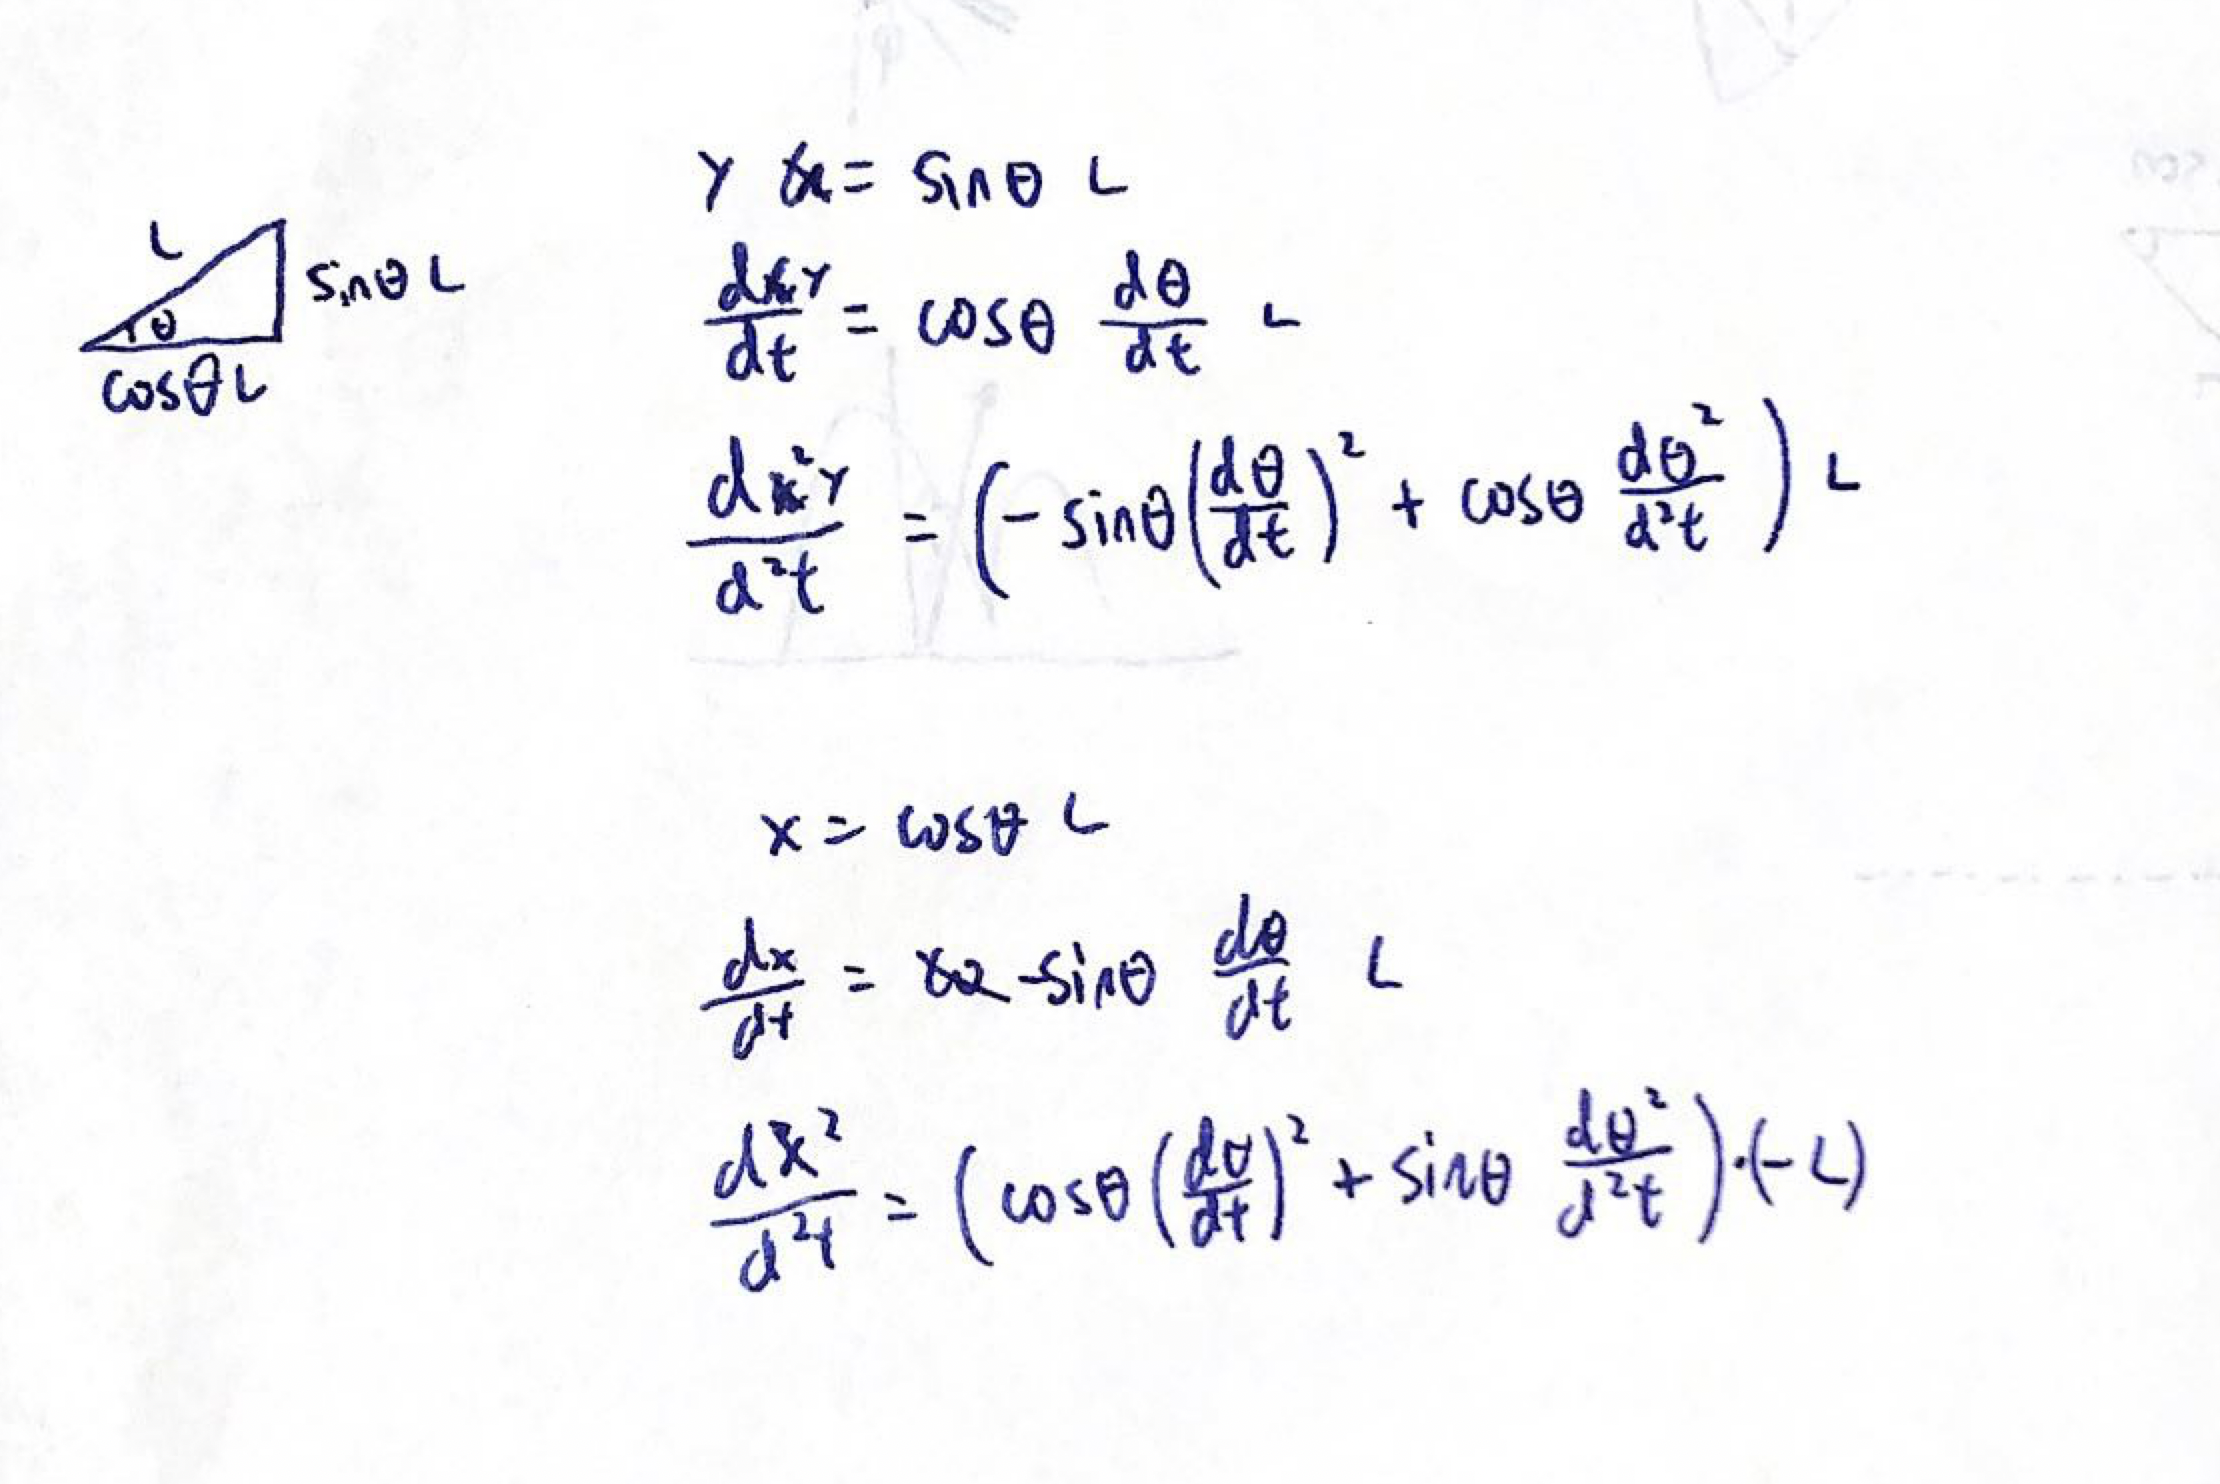 L
sinθ L
θ
cosθ L
y = sinθ L
dy/dt = cosθ dθ/dt L
d²y/d²t = (-sinθ (dθ/dt)² + cosθ dθ²/d²t) L
x = cosθ L
dx/dt = -sinθ dθ/dt L
dx²/d²t = (cosθ (dθ/dt)² + sinθ dθ²/d²t)·(-L)